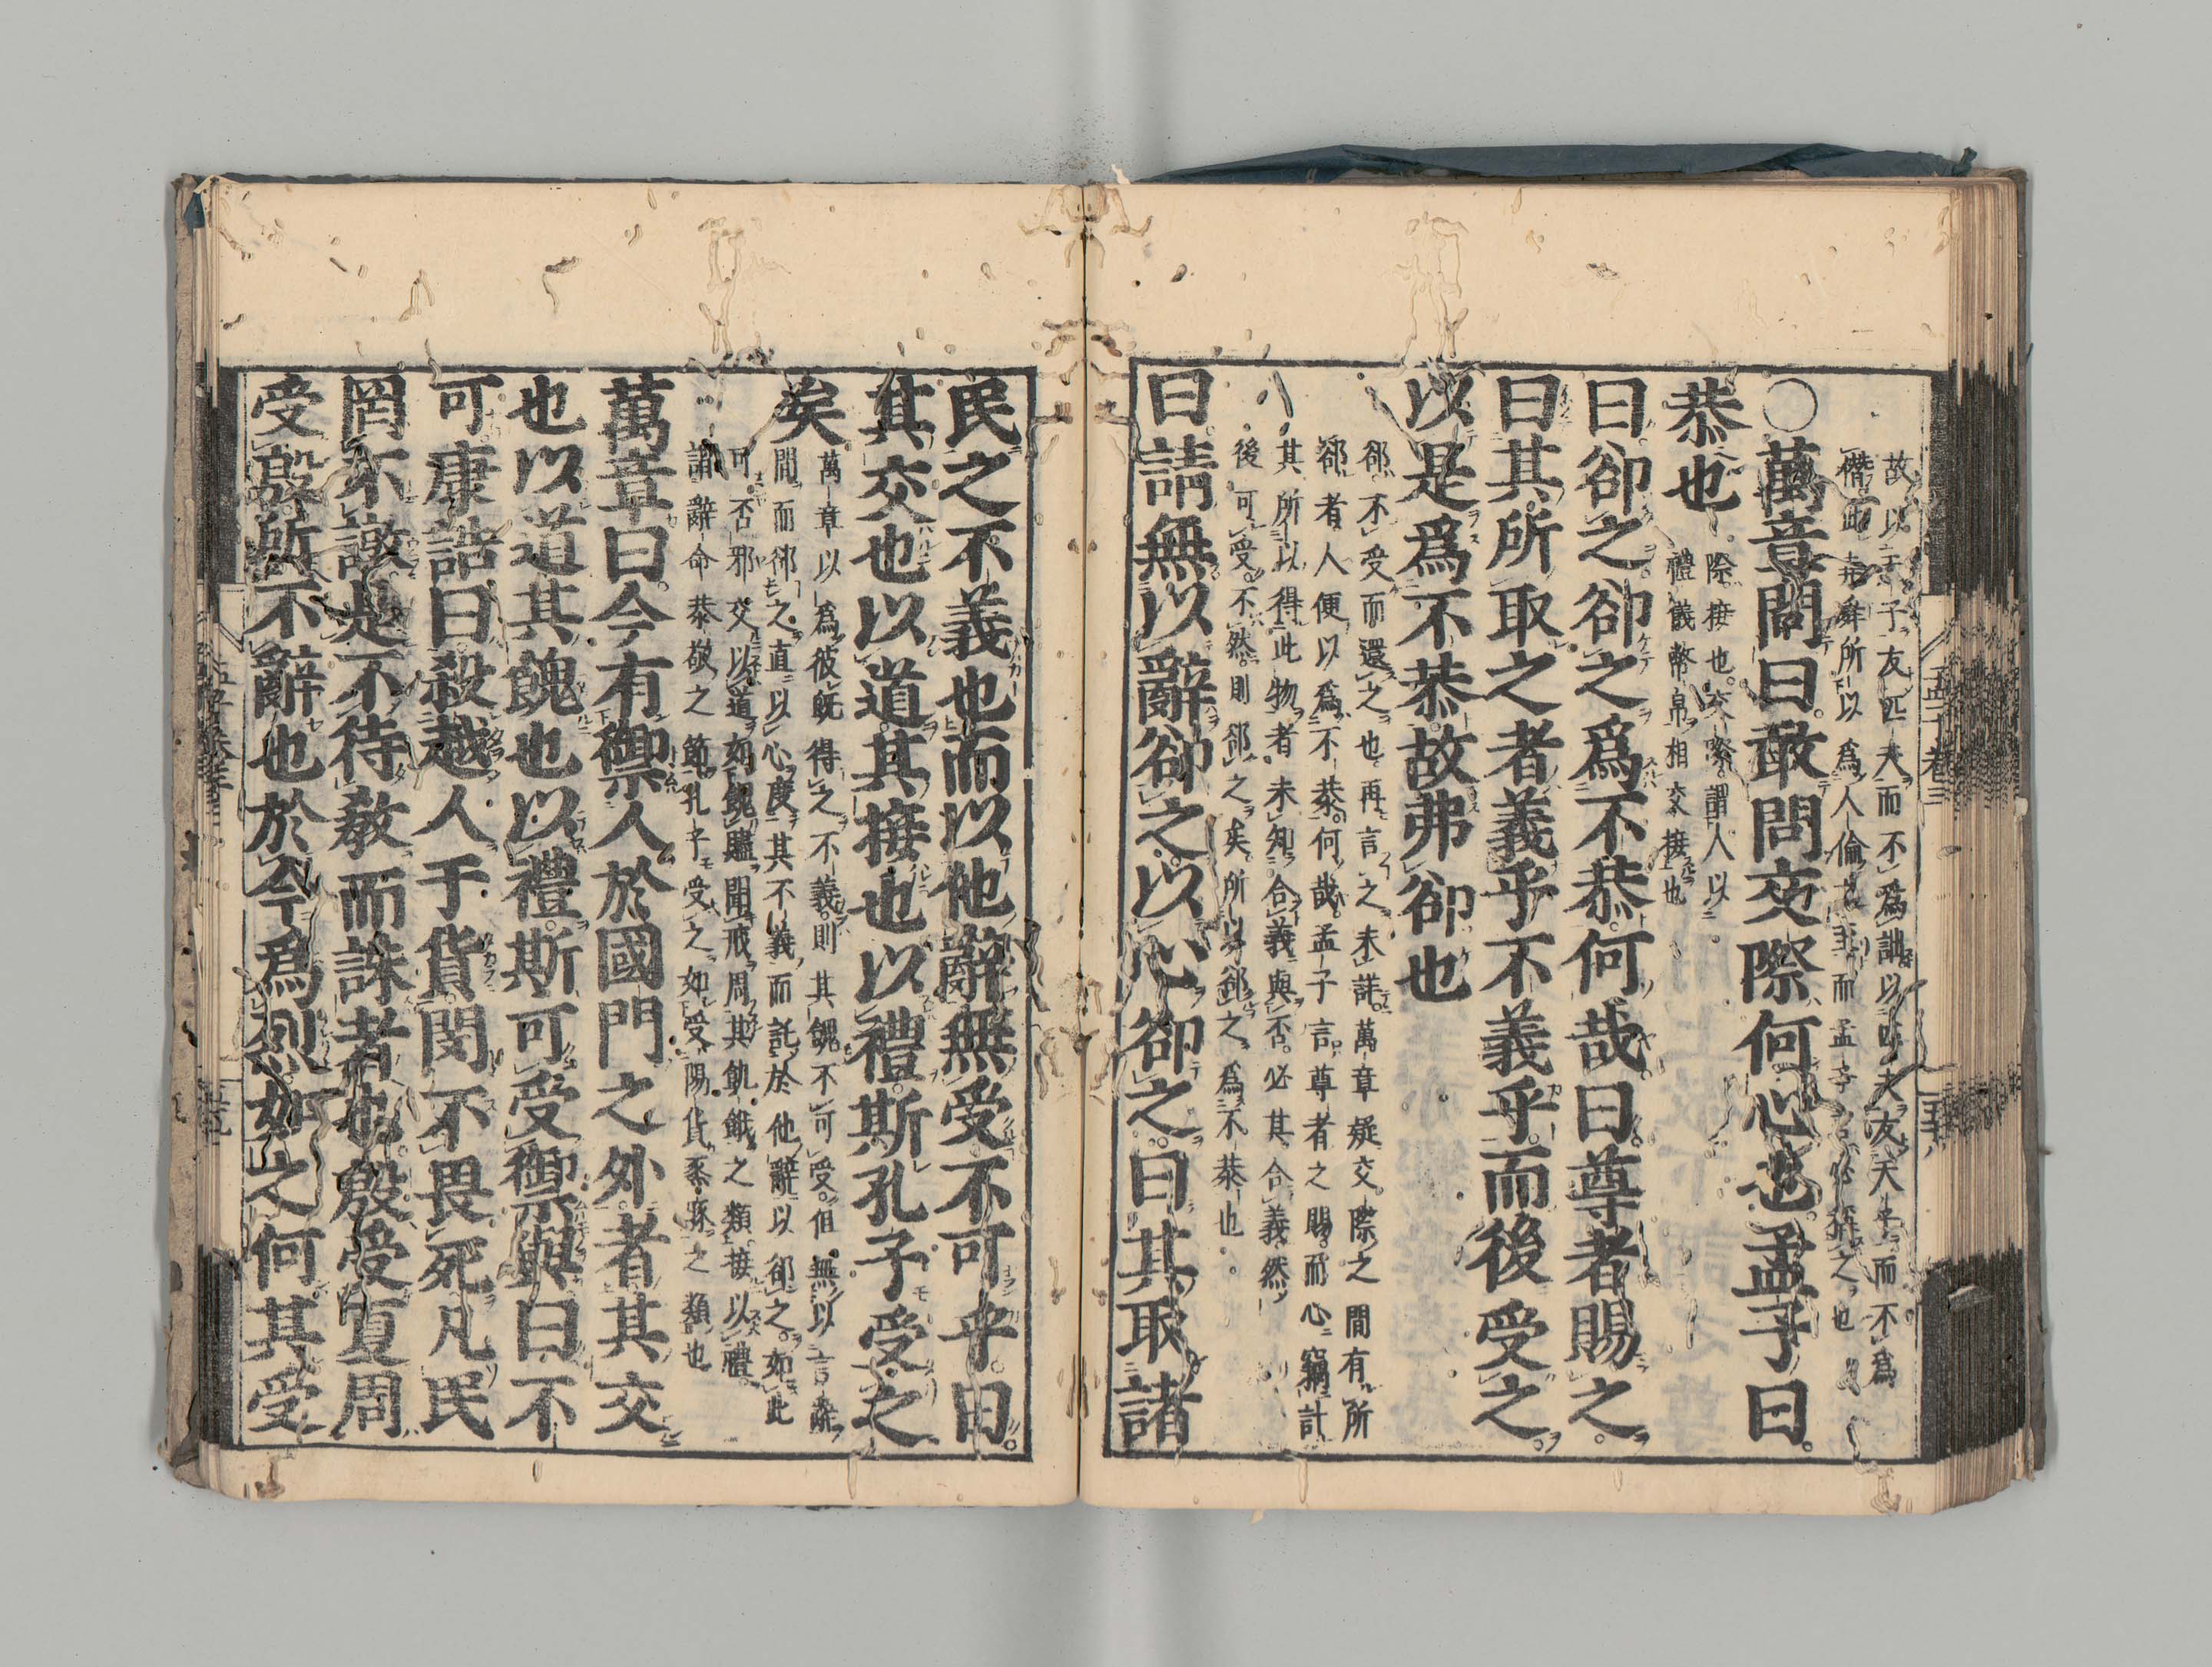 故以天子友匹夫而不爲詘以匹夫友天子而不爲
僭此堯舜所以爲人倫之至而孟子言必稱之也
○萬章問曰敢問交際何心也孟子曰
恭也
際接也交際謂人以
禮儀幣帛相交接也
曰卻之卻之爲不恭何哉曰尊者賜之
曰其所取之者義乎不義乎而後受之
以是爲不恭故弗卻也
卻不受而還之也再言之未詳萬章疑交際之間有所
卻者人便以爲不恭何哉孟子言尊者之賜而心竊計
其所以得此物者未知合義與否必其合義然
後可受不然則卻之矣所以卻之爲不恭也
曰請無以辭卻之以心卻之曰其取諸
民之不義也而以他辭無受不可乎曰
其交也以道其接也以禮斯孔子受之
矣
萬章以爲彼旣得之不義則其餽不可受但無以言辭
間而卻之直以心度其不義而託於他辭以卻之如此
可否邪交以道如餽贐聞戒周其飢餓之類接以禮
謂辭命恭敬之節孔子受之如受陽貨烝豚之類也
萬章曰今有禦人於國門之外者其交
也以道其餽也以禮斯可受禦與曰不
可康誥曰殺越人于貨閔不畏死凡民
罔不譈是不待敎而誅者也殷受夏周
受殷所不辭也於今爲烈如之何其受
孟子卷三